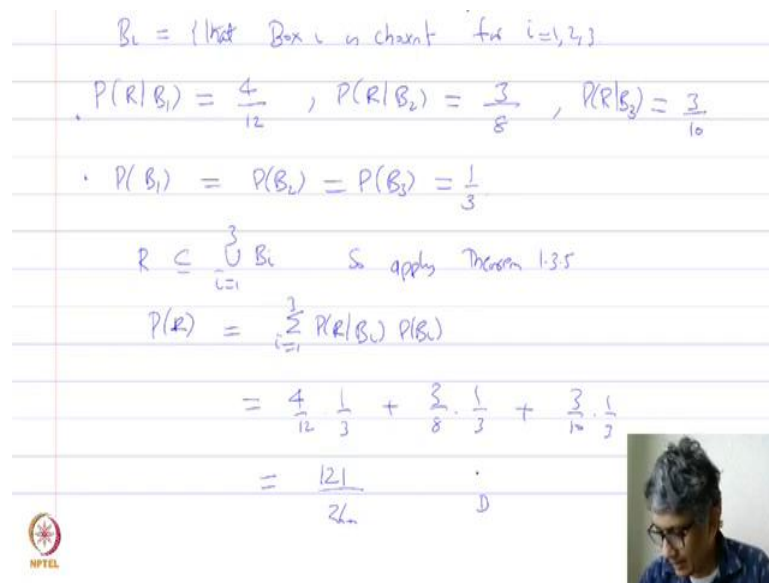 Bi = { that Box i is chosen} for i=1,2,3
P(R|B₁) = 4/12 , P(R|B₂) = 3/8 , P(R|B₃) = 3/10
P(B₁) = P(B₂) = P(B₃) = 1/3
R ⊆ ∪_{i=1}^{3} Bi So apply Theorem 1.3.5
P(R) = Σ_{i=1}^{3} P(R|Bi) P(Bi)
= 4/12 · 1/3 + 3/8 · 1/3 + 3/10 · 1/3
= 121/
NPTEL